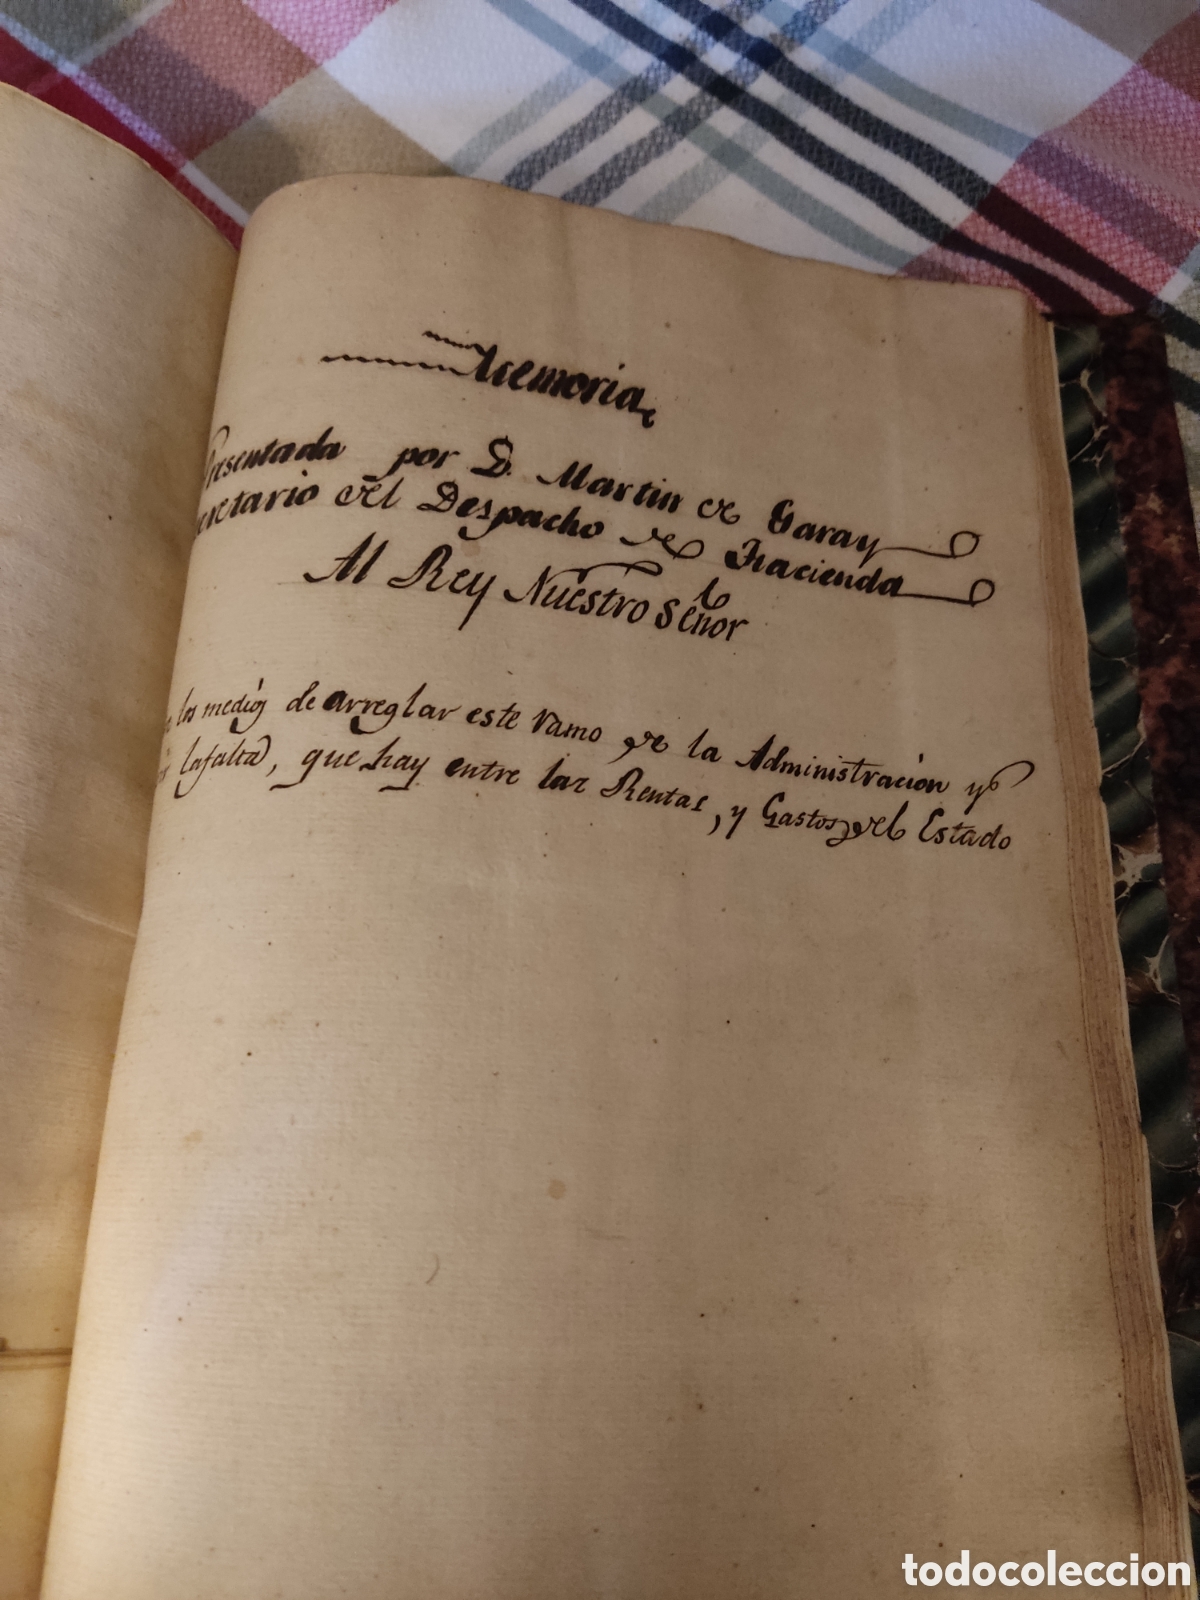 Memoria
Presentada por D. Martin de Garay
Secretario del Despacho de Hacienda
Al Rey Nuestro Señor
los medios de arreglar este ramo de la Administracion y
la falta, que hay entre las Rentas, y Gastos del Estado
todocoleccion